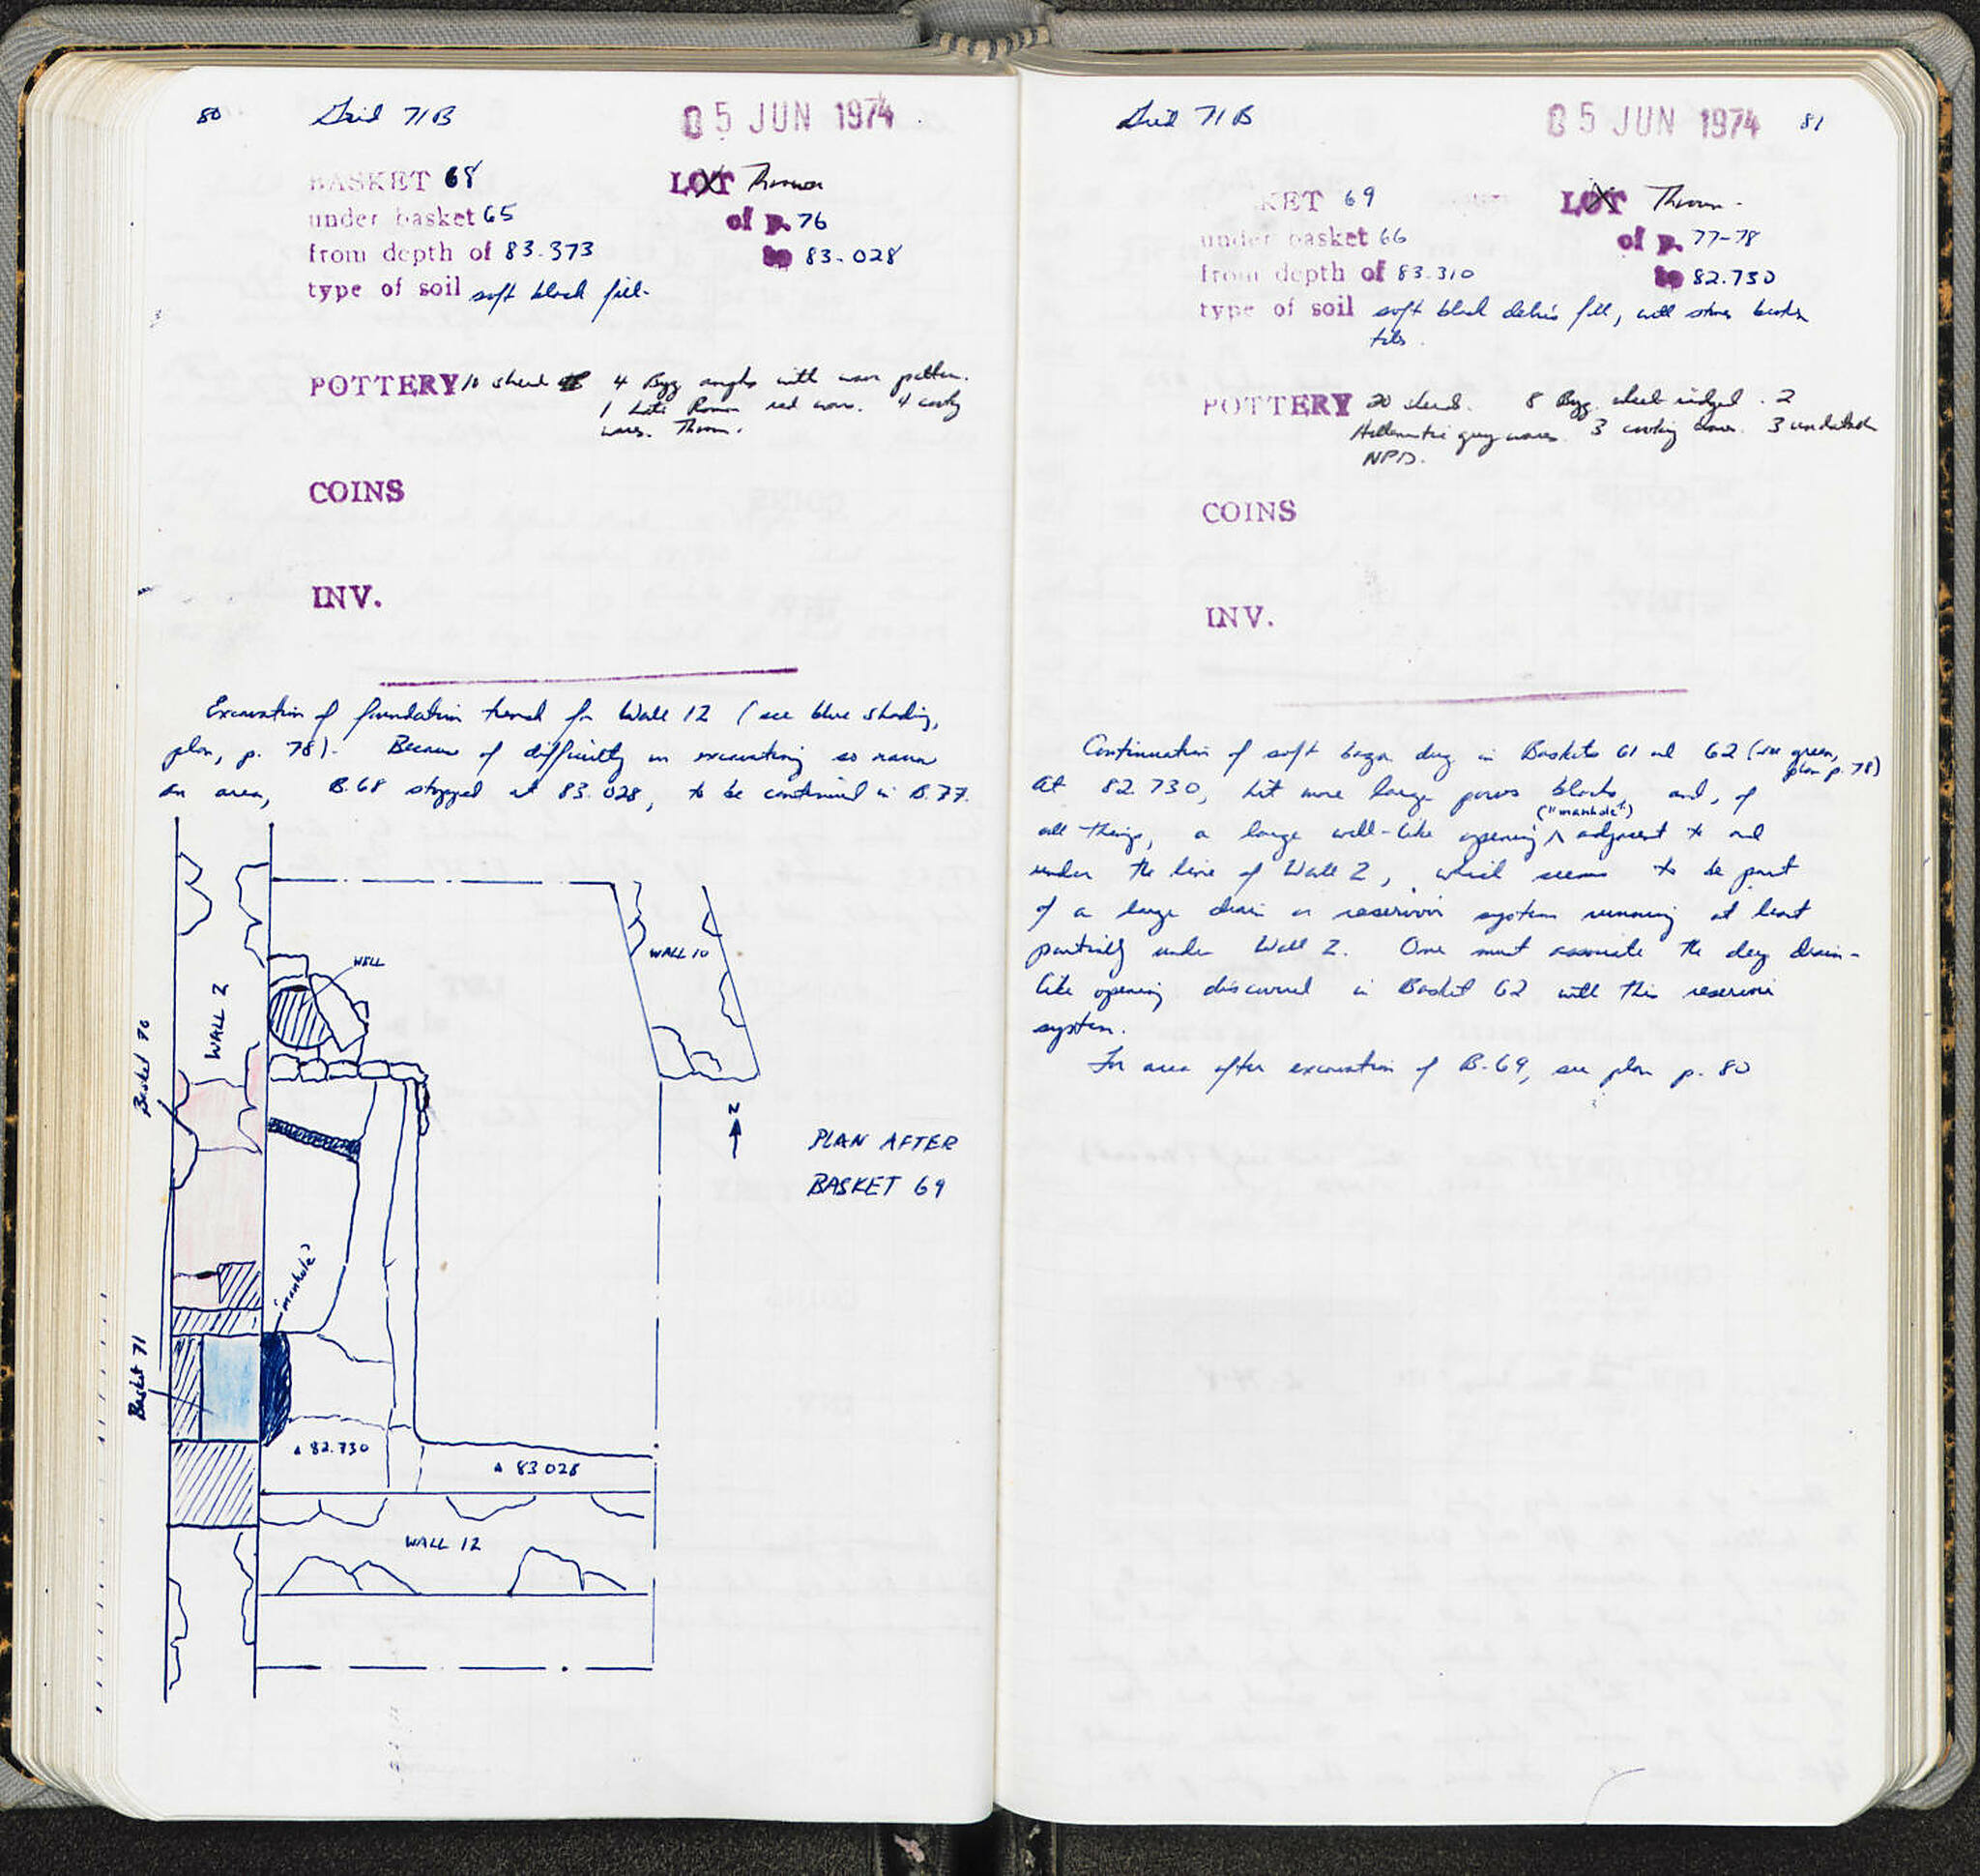 80 Grid 71B 05 JUN 1974
BASKET 68 LOT
under basket 65 of p. 76
from depth of 83.373 to 83.028
type of soil soft black fill.
POTTERY 10 sherds 4 Byz amphs with wave pattern.
1 Late Roman red ware. 4 cooking
wares. Throw.
COINS
INV.
Excavation of foundation trench for Wall 12 (see blue shading,
plan, p. 78). Because of difficulty in excavating so narrow
an area, B.68 stopped at 83.028, to be continued in B.77.
WALL 10
WELL
WALL 2
Basket 70
N
PLAN AFTER
BASKET 69
"manhole"
Basket 71
82.730
83.028
WALL 12
Grid 71B 05 JUN 1974 81
KET 69 LOT
under basket 66 of p. 77-78
from depth of 83.310 to 82.730
type of soil soft black debris fill, with stones broken
tiles.
POTTERY 20 sherds. 8 Byz. wheel ridged. 2
Hellenistic grey wares. 3 cooking wares. 3 undatable
NPD.
COINS
INV.
Continuation of soft begun dug in Baskets 61 and 62 (see green,
plan p. 78)
At 82.730, hit more large poros blocks, and, of
all things, a large well-like opening ("manhole") adjacent to and
under the line of Wall 2, which seems to be part
of a large drain or reservoir system running at least
partially under Wall 2. One must associate the deep drain-
like opening discovered in Basket 62 with this reservoir
system.
For area after excavation of B.69, see plan p. 80